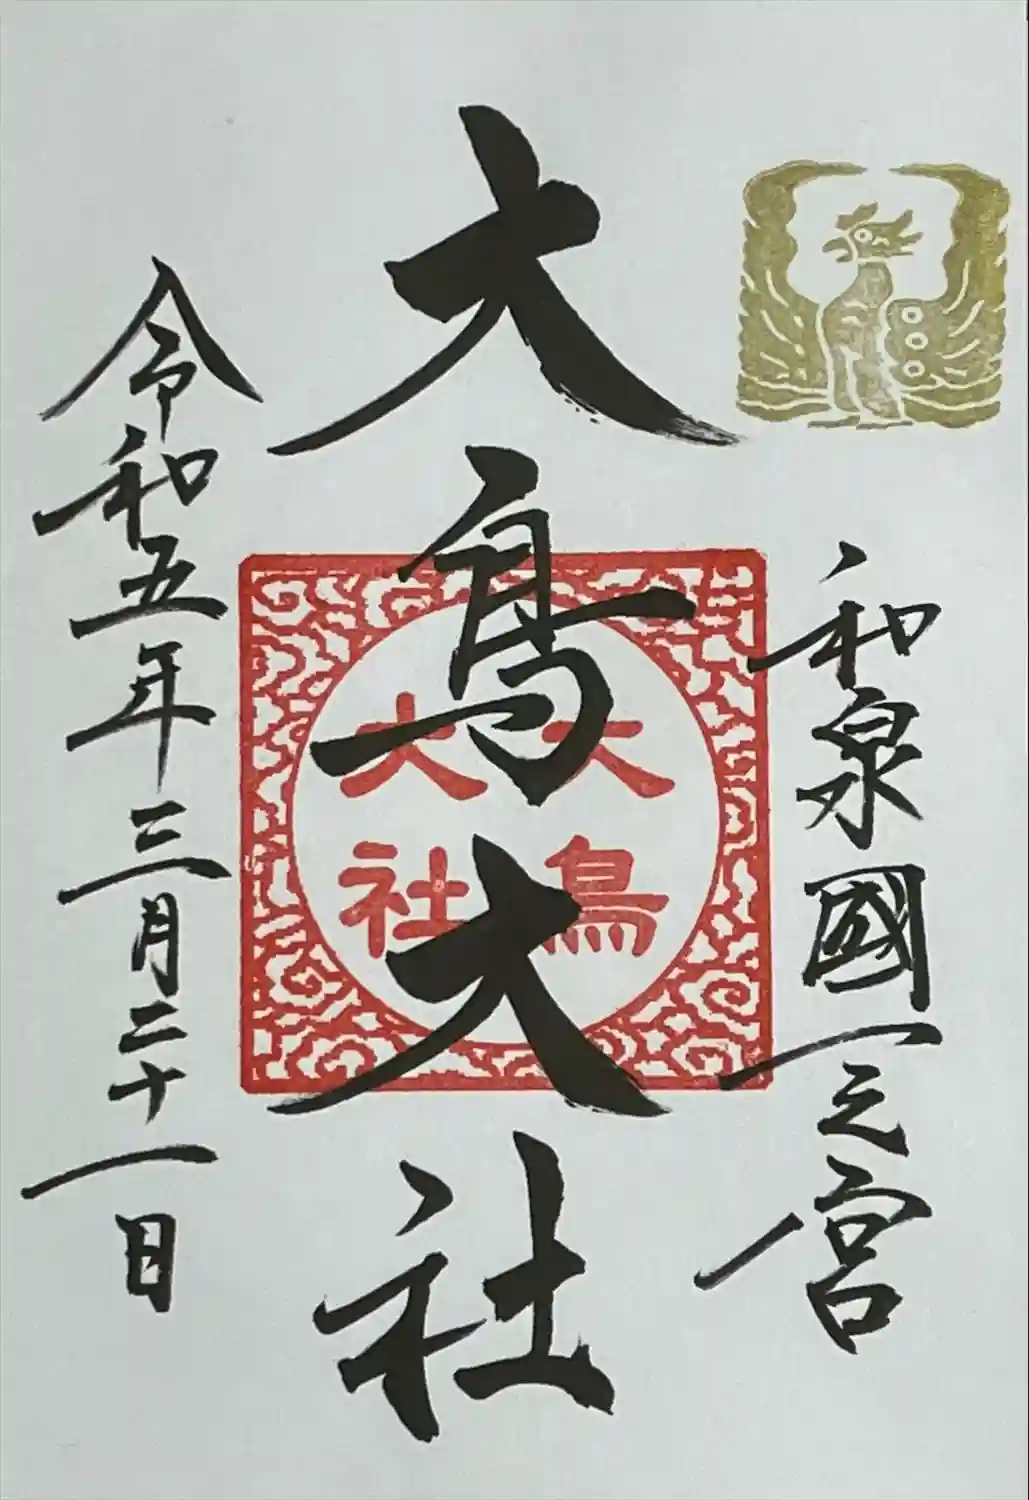 和泉國一之宮
大鳥大社
大鳥
大社
令和五年三月二十一日